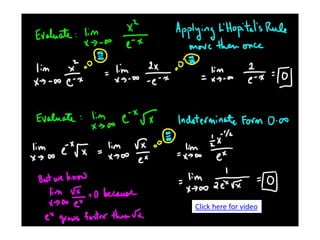 Evaluate: lim x→-∞ x²/e^-x Applying L'Hopital's Rule more than once
lim x→-∞ x²/e^-x = lim x→-∞ 2x/-e^-x = lim x→-∞ 2/e^-x = 0
Evaluate: lim x→∞ e^-x √x Indeterminate Form 0·∞
lim x→∞ e^-x √x = lim x→∞ √x/e^x = lim x→∞ ½x^-1/2/e^x
= lim x→∞ 1/2e^x√x = 0
But we know
lim x→∞ √x/e^x = 0 because
e^x grows faster than √x
Click here for video